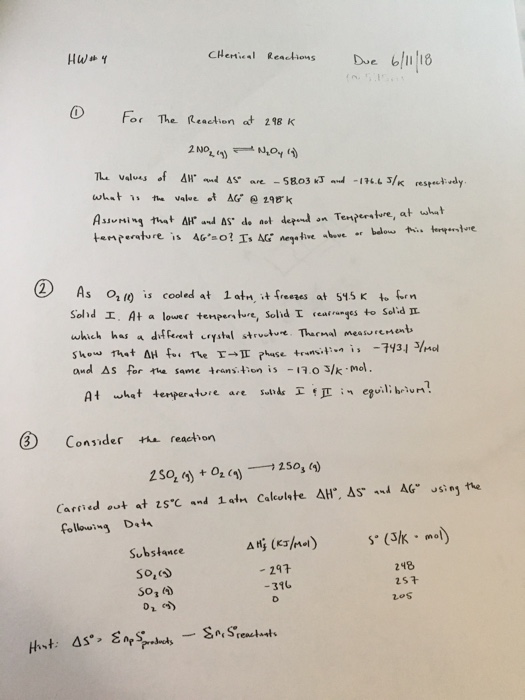 HW# 4 Chemical Reactions Due 6/11/18
① For The Reaction at 298 K
2 NO₂ (g) ⇌ N₂O₄ (g)
The values of ΔH° and ΔS° are - 58.03 kJ and -176.6 J/K respectively.
what is the value of ΔG° @ 298°K
Assuming that ΔH° and ΔS° do not depend on Temperature, at what
temperature is ΔG°=0? Is ΔG° negative above or below this temperature
② As O₂ (l) is cooled at 1 atm, it freezes at 54.5 K to form
Solid I. At a lower temperature, Solid I rearranges to Solid II
which has a different crystal structure. Thermal measurements
show that ΔH for the I→II phase transition is -743.1 J/mol
and ΔS for the same transition is -17.0 J/K·mol.
At what temperature are solids I & II in equilibrium?
③ Consider the reaction
2SO₂ (g) + O₂ (g) → 2SO₃ (g)
Carried out at 25°C and 1 atm Calculate ΔH°, ΔS° and ΔG° using the
following Data
Substance ΔH°f (KJ/mol) S° (J/K · mol)
SO₂ (g) - 297 248
SO₃ (g) - 396 257
O₂ (g) 0 205
Hint: ΔS° = Σnp S°products - Σnr S°reactants